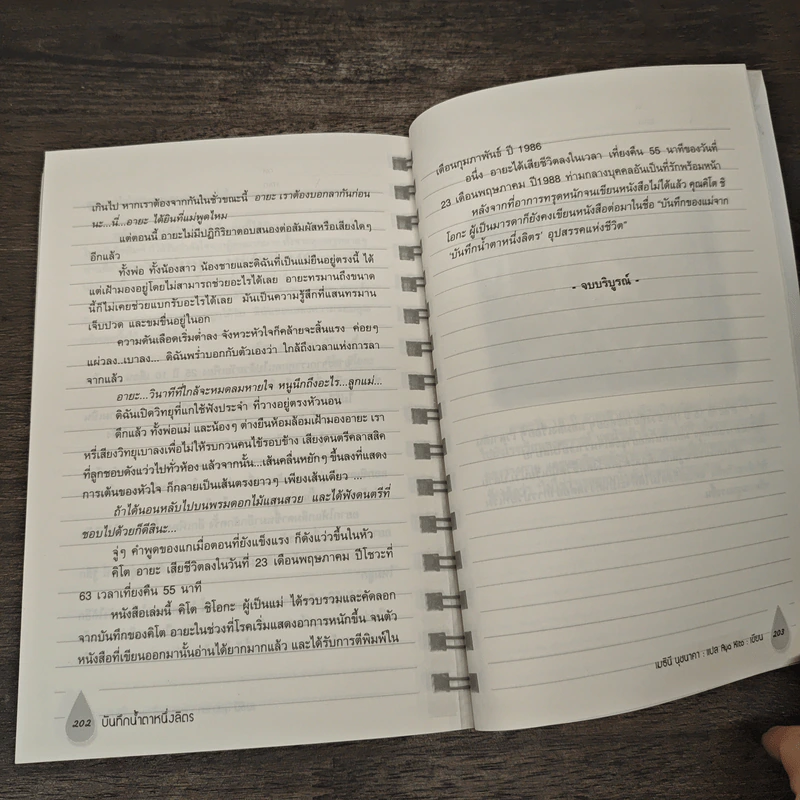 เกินไป หากเราต้องจากกันในชั่วขณะนี้ อายะ เราต้องบอกลากันก่อน
นะ...นี่...อายะ ได้ยินที่แม่พูดไหม
แต่ตอนนี้ อายะไม่มีปฏิกิริยาตอบสนองต่อสัมผัสหรือเสียงใดๆ
อีกแล้ว
ทั้งพ่อ ทั้งน้องสาว น้องชายและดิฉันที่เป็นแม่ยืนอยู่ตรงนี้ ได้
แต่เฝ้ามองอยู่โดยไม่สามารถช่วยอะไรได้เลย อายะทรมานถึงขนาด
นี้ก็ไม่เคยช่วยแบกรับอะไรได้เลย มันเป็นความรู้สึกที่แสนทรมาน
เจ็บปวด และขมขื่นอยู่ในอก
ความดันเลือดเริ่มต่ำลง จังหวะหัวใจก็คล้ายจะสิ้นแรง ค่อยๆ
แผ่วลง..เบาลง... ดิฉันพร่ำบอกกับตัวเองว่า ใกล้ถึงเวลาแห่งการลา
จากแล้ว
อายะ...วินาทีที่ใกล้จะหมดลมหายใจ หนูนึกถึงอะไร...ลูกแม่...
ดิฉันเปิดวิทยุที่แกใช้ฟังประจำ ที่วางอยู่ตรงหัวนอน
ดึกแล้ว ทั้งพ่อแม่ และน้องๆ ต่างยืนห้อมล้อมเฝ้ามองอายะ เรา
หรี่เสียงวิทยุเบาลงเพื่อไม่ให้รบกวนคนไข้รอบข้าง เสียงดนตรีคลาสสิค
ที่ลูกชอบดังแว่วไปทั่วห้อง แล้วจากนั้น...เส้นคลื่นหยักๆ ขึ้นลงที่แสดง
การเต้นของหัวใจ ก็กลายเป็นเส้นตรงยาวๆ เพียงเส้นเดียว ...
ถ้าได้นอนหลับไปบนพรมดอกไม้แสนสวย และได้ฟังดนตรีที่
ชอบไปด้วยก็ดีสินะ...
จู่ๆ คำพูดของแกเมื่อตอนที่ยังแข็งแรง ก็ดังแว่วขึ้นในหัว
คิโต อายะ เสียชีวิตลงในวันที่ 23 เดือนพฤษภาคม ปีโชวะที่
63 เวลาเที่ยงคืน 55 นาที
หนังสือเล่มนี้ คิโต ชิโอกะ ผู้เป็นแม่ ได้รวบรวมและคัดลอก
จากบันทึกของคิโต อายะในช่วงที่โรคเริ่มแสดงอาการหนักขึ้น จนตัว
หนังสือที่เขียนออกมานั้นอ่านได้ยากมากแล้ว และได้รับการตีพิมพ์ใน
202 บันทึกน้ำตาหนึ่งลิตร
เดือนกุมภาพันธ์ ปี 1986
อนึ่ง อายะได้เสียชีวิตลงในเวลา เที่ยงคืน 55 นาทีของวันที่
23 เดือนพฤษภาคม ปี1988 ท่ามกลางบุคคลอันเป็นที่รักพร้อมหน้า
หลังจากที่อาการทรุดหนักจนเขียนหนังสือไม่ได้แล้ว คุณคิโต ชิ
โอกะ ผู้เป็นมารดาก็ยังคงเขียนหนังสือต่อมาในชื่อ “บันทึกของแม่จาก
‘บันทึกน้ำตาหนึ่งลิตร’ อุปสรรคแห่งชีวิต”
- จบบริบูรณ์ -
เมธินี นุชนาคา : แปล Aya Kito : เขียน 203